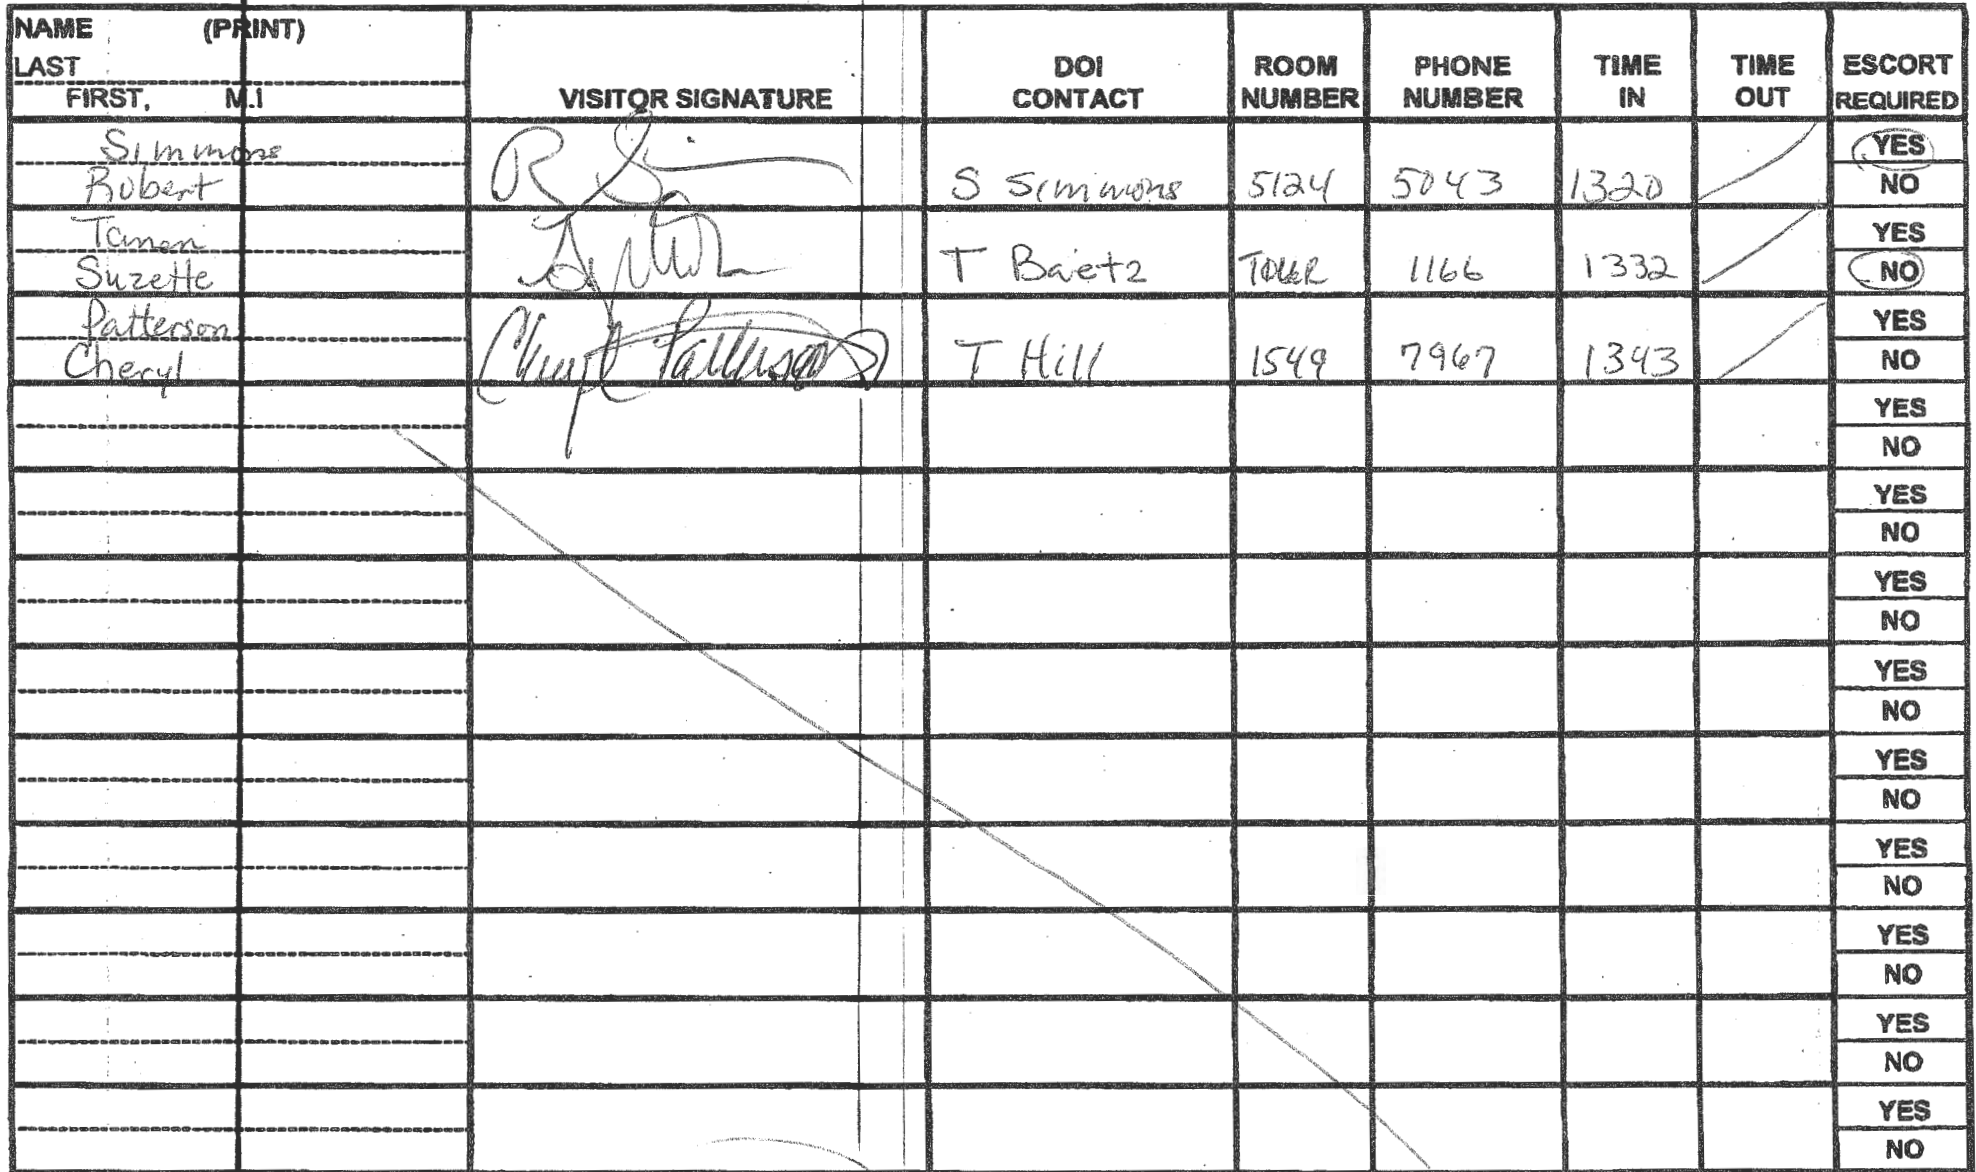 NAME (PRINT)
LAST
FIRST, M.I
VISITOR SIGNATURE
DOI
CONTACT
ROOM
NUMBER
PHONE
NUMBER
TIME
IN
TIME
OUT
ESCORT
REQUIRED
Simmons
Robert
S Simmons 5124 5043 1320
YES
NO
Suzette
T Baetz 1166 1332
YES
NO
Patterson
Cheryl
Cheryl Patterson
T Hill 1549 7967 1343
YES
NO
YES
NO
YES
NO
YES
NO
YES
NO
YES
NO
YES
NO
YES
NO
YES
NO
YES
NO